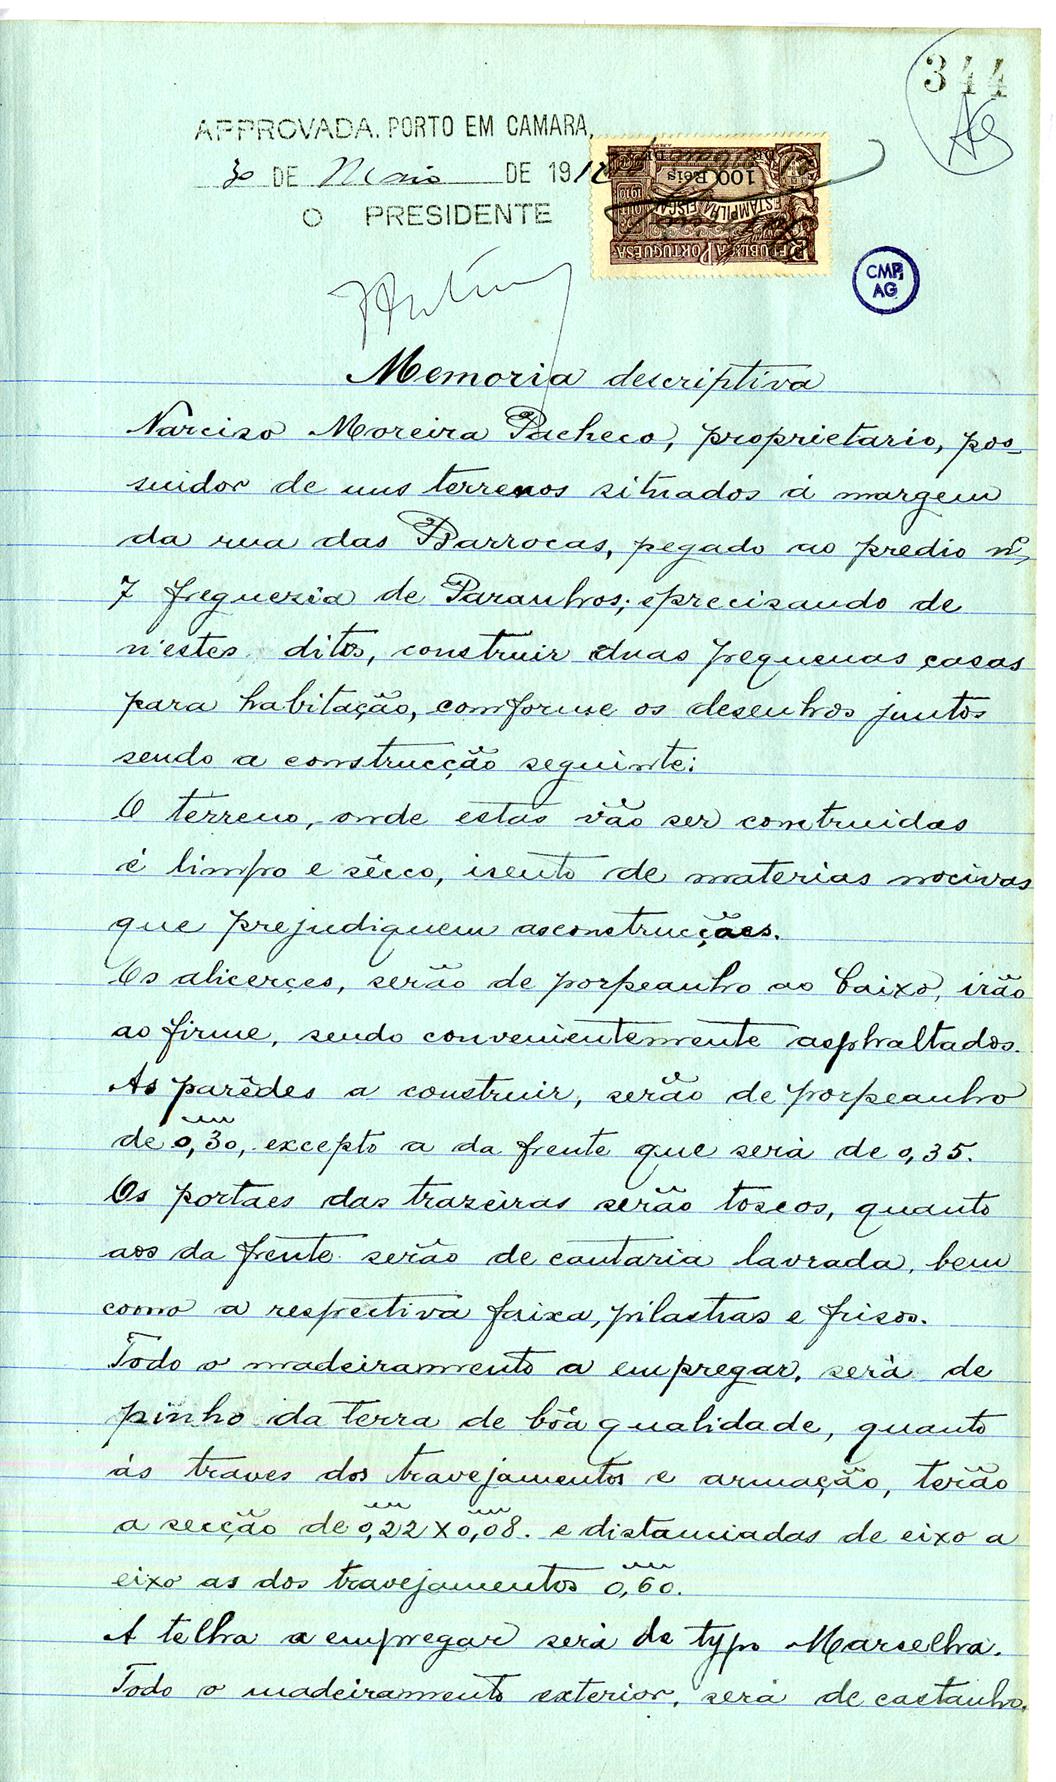 344
APPROVADA. PORTO EM CAMARA,
30 DE Maio DE 1912
O PRESIDENTE
REPUBLICA PORTUGUESA
ESTAMPILHA FISCAL
100 Réis
CMP,
AG
Memoria descriptiva
Narciso Moreira Pacheco, proprietario, pos-
suidor de uns terrenos situados á margem
da rua das Barrocas, pegado ao predio nº,
7 freguezia de Paranhos; e precisando de
n'estes ditos, construir duas pequenas casas
para habitação, comforme os desenhos juntos
sendo a construcção seguinte:
O terreno, onde estas vão ser comtruidas
é limpo e sêcco, isento de materias nocivas
que prejudiquem asconstrucções.
Os alicerçes, serão de porpeanho ao baixo, irão
ao firme, sendo convenientemente asphaltados.
As parêdes a construir, serão de porpeanho
de 0,30, excepto a da frente que será de 0,35.
Os portaes das trazeiras serão toscos, quanto
aos da frente serão de cantaria lavrada, bem
como a respectiva faixa, pilastras e frisos.
Todo o madeiramento a empregar, será de
pinho da terra de bôa qualidade, quanto
ás traves dos travejamentos e armação, terão
a secção de 0,22 x 0,08. e distanciadas de eixo a
eixo as dos travejamentos 0,60.
A telha a empregar será de typo Marselha.
Todo o madeiramento exterior, será de castanho,